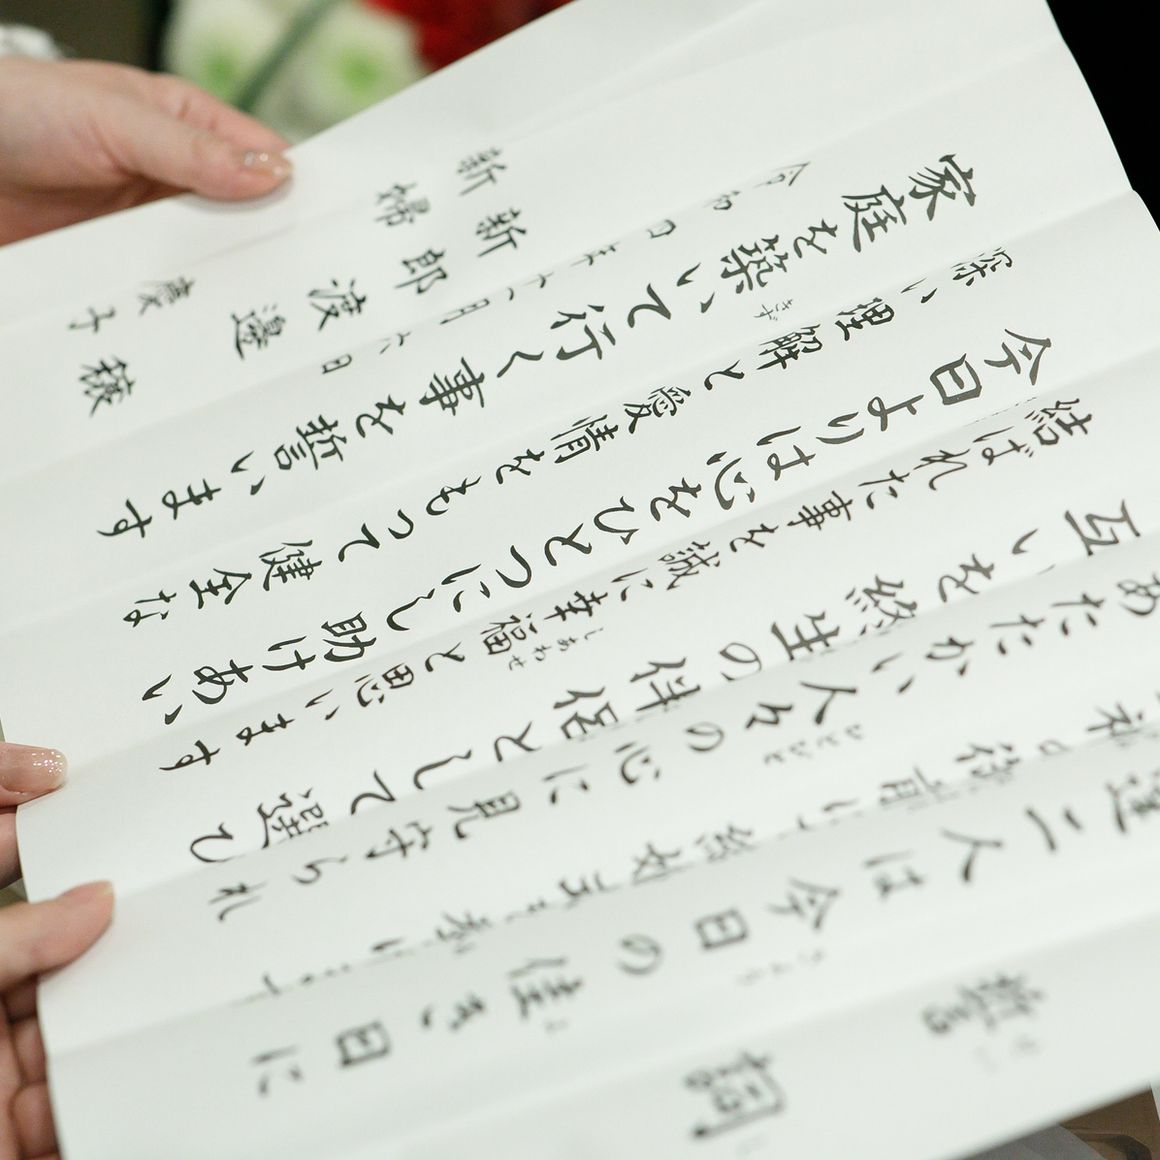 誓詞
達二人は今日の佳き日に
あたたかい人々の心に見守られ
ひとびと
互いを終生の伴侶として選び
結ばれた事を誠に幸福と思います
しあわせ
今日よりは心をひとつにし助けあい
深い理解と愛情をもって健全な
家庭を築いて行く事を誓います
きず
令和四年 六日
新郎 渡邊
新婦 慶子